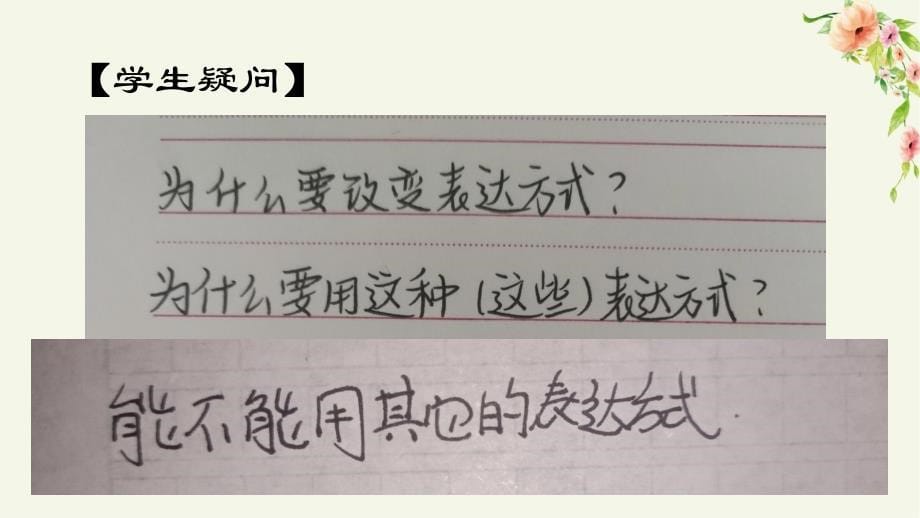 【学生疑问】
为什么要改变表达方式？
为什么要用这种(这些)表达方式？
能不能用其它的表达方式.